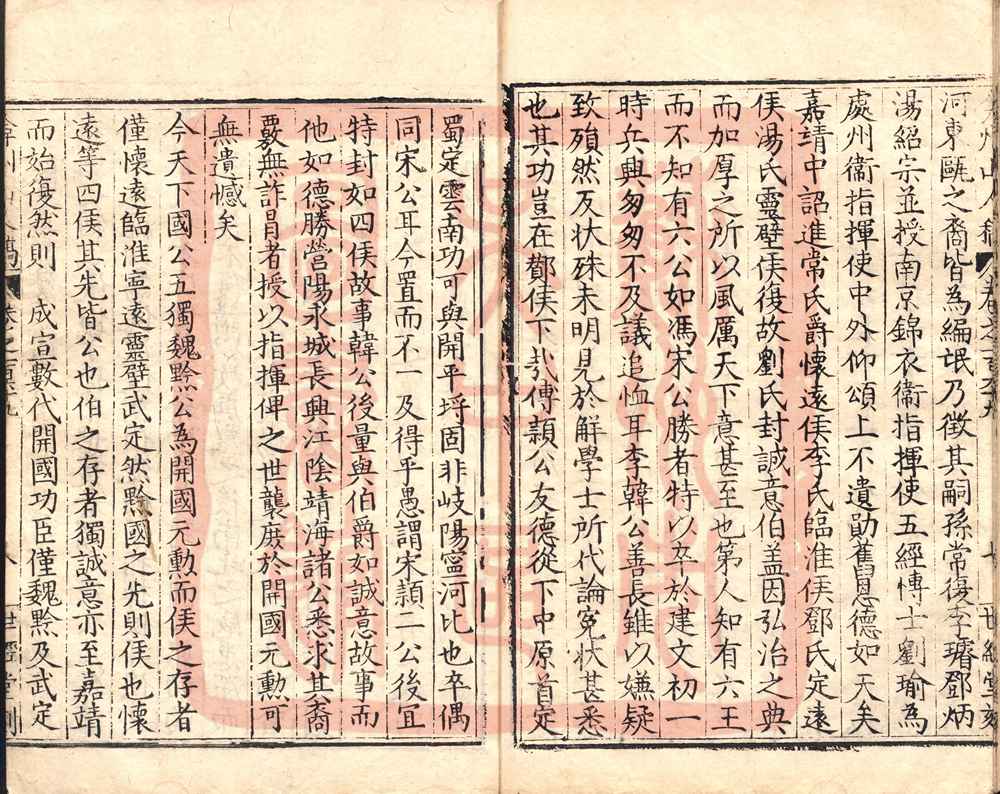 河東甌之裔皆為編氓乃徵其嗣孫常復李璿鄧炳
湯紹宗並授南京錦衣衛指揮使五經博士劉瑜為
處州衛指揮使中外仰頌上不遺勛舊恩德如天矣
嘉靖中詔進常氏爵懷遠侯李氏臨淮侯鄧氏定遠
侯湯氏靈壁侯復故劉氏封誠意伯盖因弘治之典
而加厚之所以風厲天下意甚至也第人知有六王
而不知有六公如馮宋公勝者特以卒於建文初一
時兵興匆匆不及議追恤耳李韓公善長雖以嫌疑
致殞然反状殊未明見於解學士所代論寃状甚悉
也其功豈在酇侯下㢤傅潁公友德從下中原首定
蜀定雲南功可與開平埒固非岐陽寧河比也卒偶
同宋公耳今置而不一及得乎愚謂宋潁二公後宜
特封如四侯故事韓公後量與伯爵如誠意故事而
他如德勝營陽永城長興江陰靖海諸公悉求其裔
覈無詐冒者授以指揮俾之世襲庶於開國元勲可
無遺憾矣
今天下國公五獨魏黔公為開國元勲而侯之存者
僅懷遠臨淮寧遠靈壁武定然黔國之先則侯也懷
遠等四侯其先皆公也伯之存者獨誠意亦至嘉靖
而始復然則 成宣數代開國功臣僅魏黔及武定
八 世經堂刻